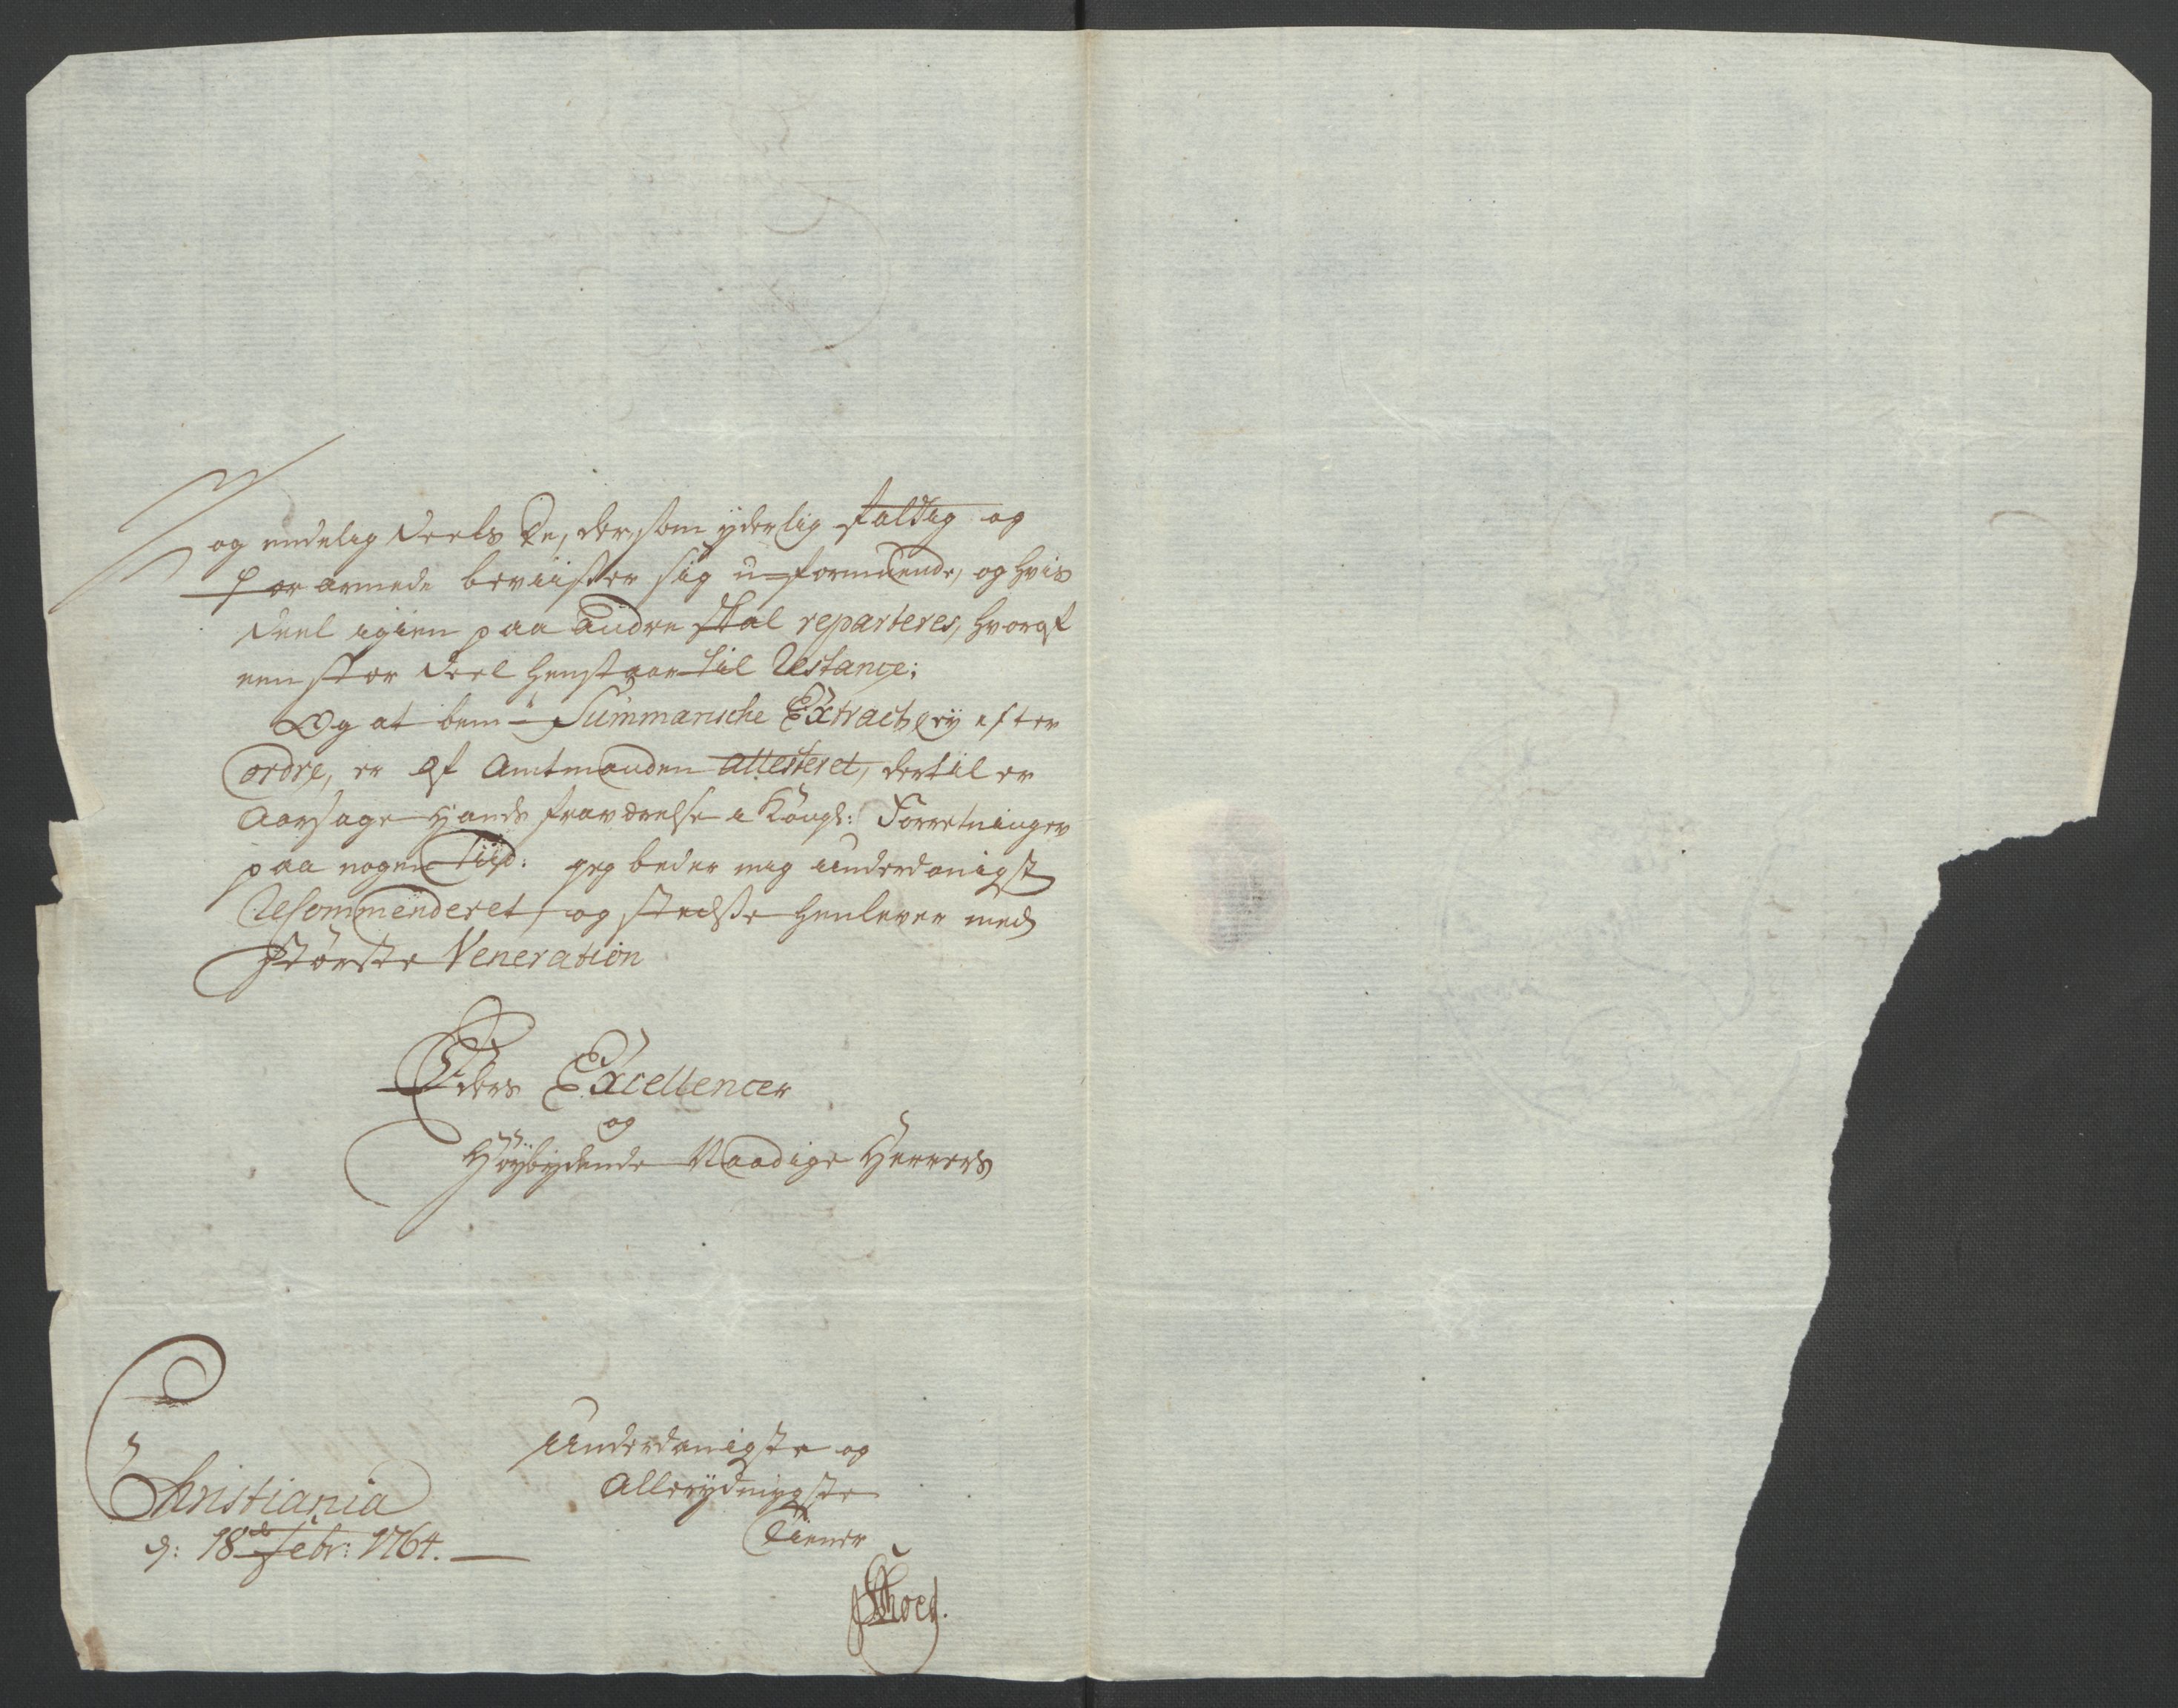 og endelig deels De, der som yderlig fattig og
forarmede beviister sig u-formuende, og hvis
deel igien paa andre skal reparteres, hvoraf
een stor deel henstaar til Restance;
Og at bem:te Summariske Extract ey efter
ordre, er af Amtmanden attesteret, dertil er
Aarsage Hands fraværelse i Kongl: Forretninger
paa nogen Tiid: jeg beder mig underdanigst
Recommenderet, og stedse henlever med
største Veneration
Eders Excellencer
og
Høybydende Naadige Herrers
Underdanigste og
Allerydmygste
Tiener
Christiania
d: 18de Febr: 1764.